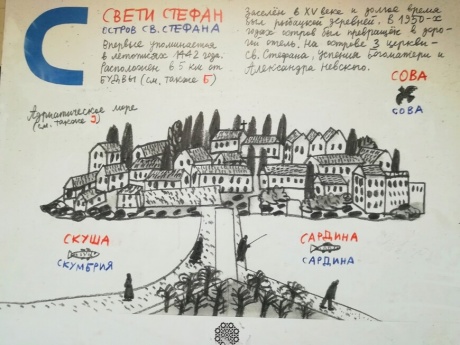 С
СВЕТИ СТЕФАН
ОСТРОВ СВ. СТЕФАНА
Впервые упоминается
в летописях 1442 года.
Расположен в 5 км от
БУДВЫ (см. также Б)
Заселён в XV веке и долгое время
был рыбацкой деревней. В 1950-х
годах остров был превращён в доро-
гой отель. На острове 3 церкви-
Св. Стефана, Успения Богоматери и
Александра Невского.
СОВА
СОВА
Адриатическое море
(см. также J)
СКУША
СКУМБРИЯ
САРДИНА
САРДИНА